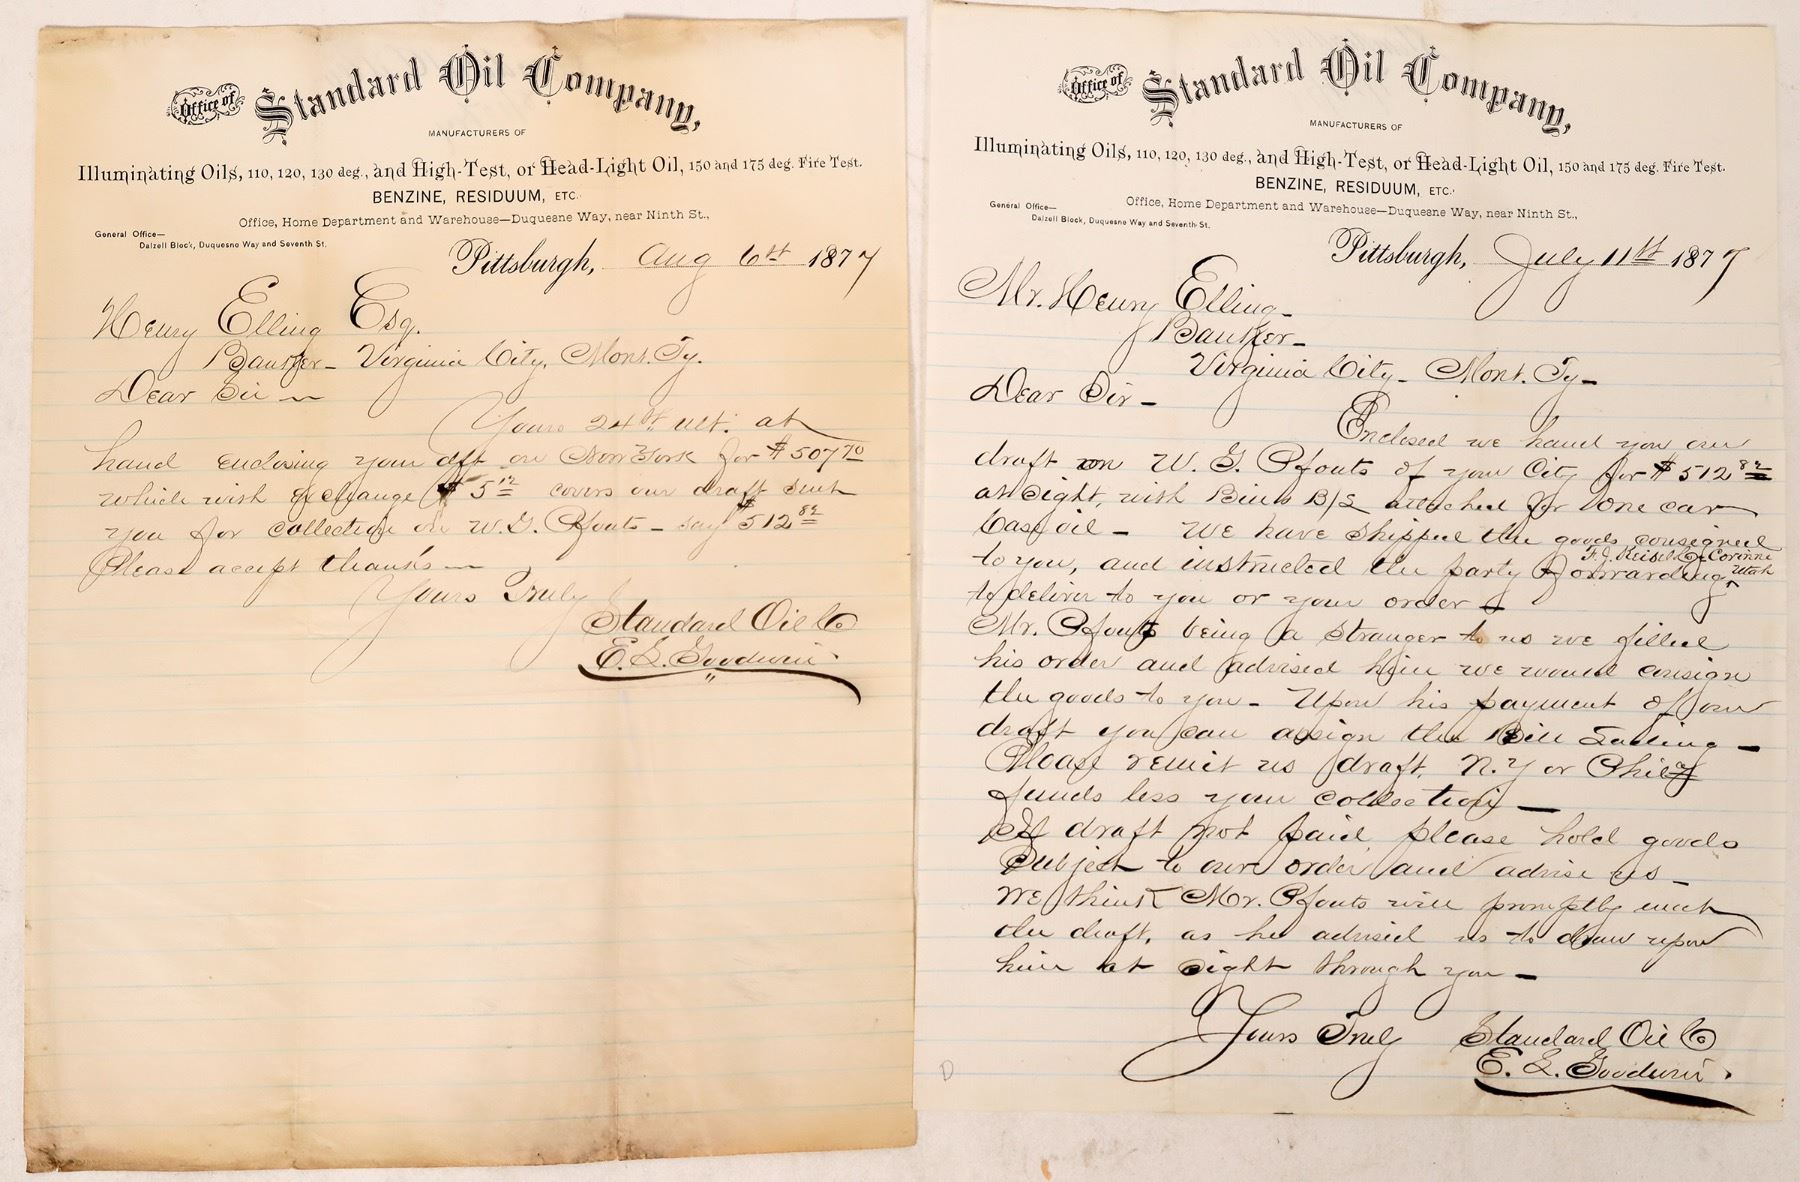 Office of
Standard Oil Company,
MANUFACTURERS OF
Illuminating Oils, 110, 120, 130 deg., and High-Test, or Head-Light Oil, 150 and 175 deg. Fire Test.
BENZINE, RESIDUUM, ETC.
Office, Home Department and Warehouse—Duquesne Way, near Ninth St.,
General Office—
Dalzell Block, Duquesne Way and Seventh St.
Pittsburgh, Aug 6th 1877
Henry Elling Esq.
Banker - Virginia City, Mont. Ty.
Dear Sir —
Yours 24th ult. at
hand enclosing your dft on New York for $507 70
which with exchange $5 12 covers our draft sent
you for collection on W. G. Pfouts - say $512 82
Please accept thanks —
Yours Truly
Standard Oil Co
E. L. Goodwin
Office of
Standard Oil Company,
MANUFACTURERS OF
Illuminating Oils, 110, 120, 130 deg., and High-Test, or Head-Light Oil, 150 and 175 deg. Fire Test.
BENZINE, RESIDUUM, ETC.
Office, Home Department and Warehouse—Duquesne Way, near Ninth St.,
General Office—
Dalzell Block, Duquesne Way and Seventh St.
Pittsburgh, July 11th 1877
Mr. Henry Elling -
Banker -
Virginia City - Mont. Ty -
Dear Sir -
Enclosed we hand you our
draft on W. G. Pfouts of your City for $512 82
at sight, with B/L attached for One car
Case oil - We have shipped the goods consigned
to you, and instructed the party forwarding F. J. Corinne Utah
to deliver to you or your order -
Mr. Pfouts being a stranger to us we filled
his order and advised him we would consign
the goods to you - Upon his payment of our
draft you can assign the Bill Lading -
Please remit us draft, N.Y or Phila
funds less your collection —
If draft not paid please hold goods
Subject to our order and advise us -
We think Mr. Pfouts will promptly meet
the draft, as he advised us to draw upon
him at sight through you -
Yours Truly Standard Oil Co
E. L. Goodwin
D